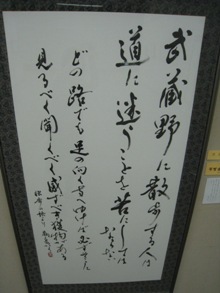 武蔵野に散歩する人は
道に迷うことを苦にしては
ならない
どの路でも足の向く方へゆけば必ず其処に
見るべく聞くべく感ずべき獲物がある